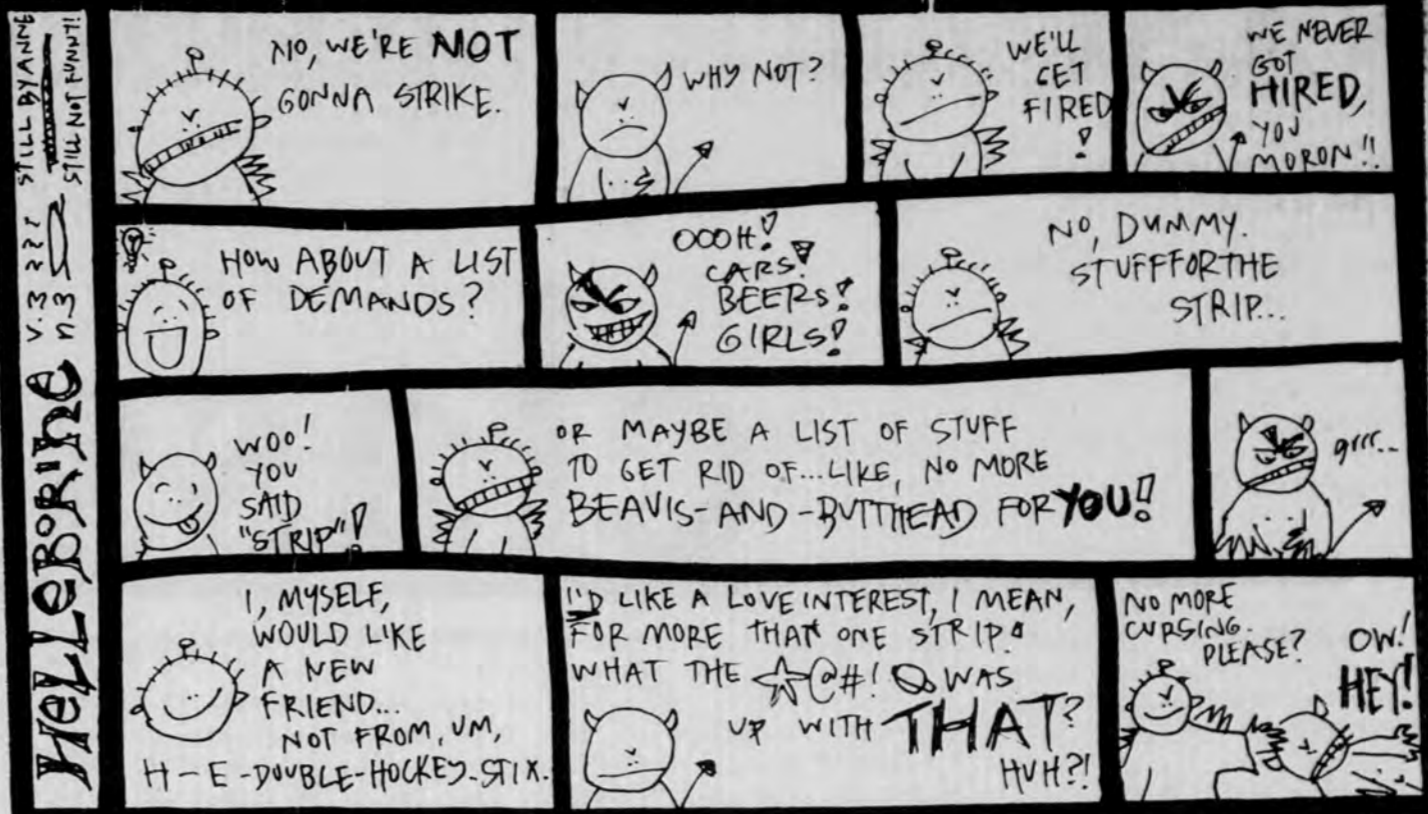 HeLLeBoRine
STILL BY ANNE
STILL NOT FUNNY!
NO, WE'RE NOT
GONNA STRIKE.
WHY NOT?
WE'LL
GET
FIRED
!
WE NEVER
GOT
HIRED,
YOU
MORON!!
HOW ABOUT A LIST
OF DEMANDS?
OOOH!
CARS!
BEERS!
GIRLS!
NO, DUMMY.
STUFF FOR THE
STRIP...
WOO!
YOU
SAID
"STRIP"!
OR MAYBE A LIST OF STUFF
TO GET RID OF...LIKE, NO MORE
BEAVIS-AND-BUTTHEAD FOR YOU!!
grrr...
I, MYSELF,
WOULD LIKE
A NEW
FRIEND...
NOT FROM, UM,
H-E-DOUBLE-HOCKEY-STIX.
I'D LIKE A LOVE INTEREST, I MEAN,
FOR MORE THAN ONE STRIP!
WHAT THE ☆@#! WAS
UP WITH THAT?
HUH?!
NO MORE
CURSING.
PLEASE?
OW!
HEY!